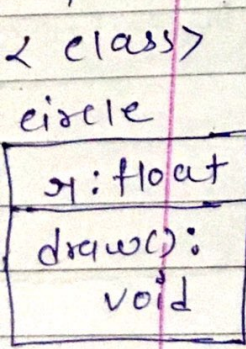 < class>
circle
r: float
draw():
void